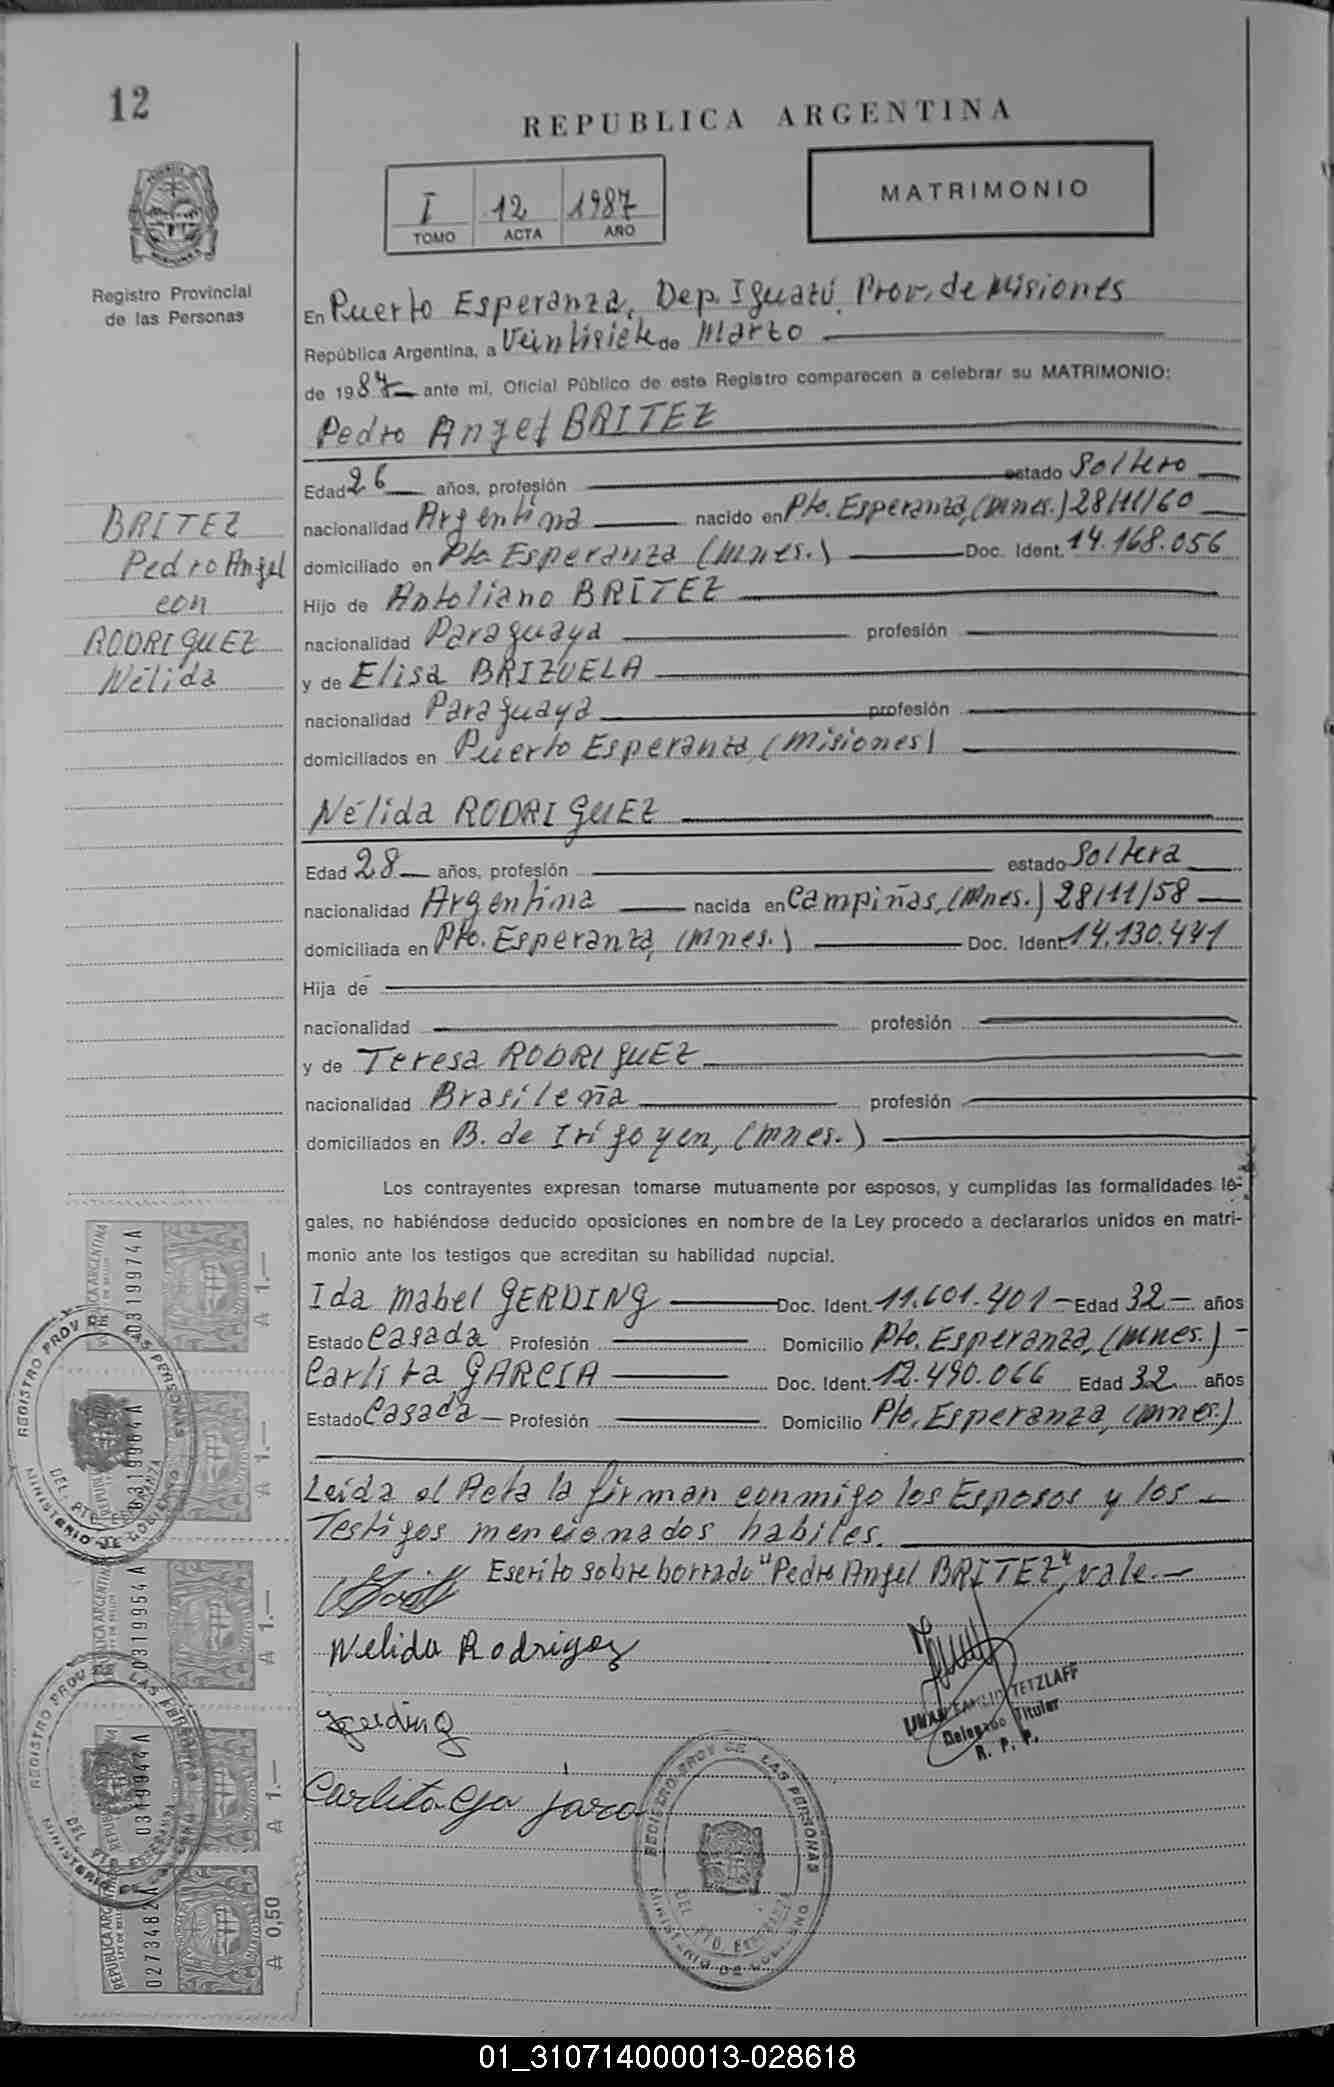 12
REPUBLICA ARGENTINA
I 12 1987
TOMO ACTA AÑO
MATRIMONIO
Registro Provincial
de las Personas
En Puerto Esperanza, Dep. Iguazú, Prov. de Misiones
República Argentina, a Veintisiete de Marzo
de 1987 ante mi, Oficial Público de este Registro comparecen a celebrar su MATRIMONIO:
Pedro Angel BRITEZ
Edad 26 años, profesión estado Soltero
nacionalidad Argentina nacido en Pto. Esperanza, (Mnes.) 28/11/60
domiciliado en Pto. Esperanza (Mnes.) Doc. Ident. 14.168.056
Hijo de Antoliano BRITEZ
nacionalidad Paraguaya profesión
y de Elisa BRIZUELA
nacionalidad Paraguaya profesión
domiciliados en Puerto Esperanza, (Misiones)
BRITEZ
Pedro Angel
con
RODRIGUEZ
Nélida
Nélida RODRIGUEZ
Edad 28 años, profesión estado Soltera
nacionalidad Argentina nacida en Campiñas, (Mnes.) 28/11/58
domiciliada en Pto. Esperanza, (Mnes.) Doc. Ident. 14.130.441
Hija de
nacionalidad profesión
y de Teresa RODRIGUEZ
nacionalidad Brasileña profesión
domiciliados en B. de Irigoyen, (Mnes.)
Los contrayentes expresan tomarse mutuamente por esposos, y cumplidas las formalidades le-
gales, no habiéndose deducido oposiciones en nombre de la Ley procedo a declararlos unidos en matri-
monio ante los testigos que acreditan su habilidad nupcial.
Ida Mabel GERDING Doc. Ident. 11.601.401 Edad 32 años
Estado Casada Profesión Domicilio Pto. Esperanza, (Mnes.)
Carlita GARCIA Doc. Ident. 12.490.066 Edad 32 años
Estado Casada Profesión Domicilio Pto. Esperanza, (Mnes.)
Leída el Acta la firman conmigo los Esposos y los
Testigos mencionados habiles.
Escrito sobre borrado "Pedro Angel BRITEZ", vale.
Nelida Rodriguez
Gerding
Carlita
TETZLAFF
Delegado Titular
R. P. P.
REGISTRO PROV DE LAS PERSONAS
MINISTERIO DE GOBIERNO
DEL PTO. ESPERANZA
REPUBLICA ARGENTINA
0319974A
A 1.—
0319964A
A 1.—
0319954A
A 1.—
0319944A
A 1.—
0273482A
A 0,50
REGISTRO PROV DE LAS PERSONAS
MINISTERIO DE GOBIERNO
REGISTRO PROV DE LAS PERSONAS
01_310714000013-028618